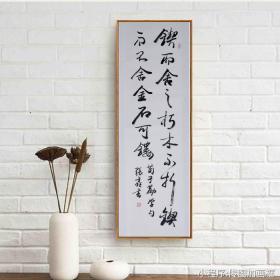 锲而舍之朽木不折锲
而不舍金石可镂
荀子劝学句